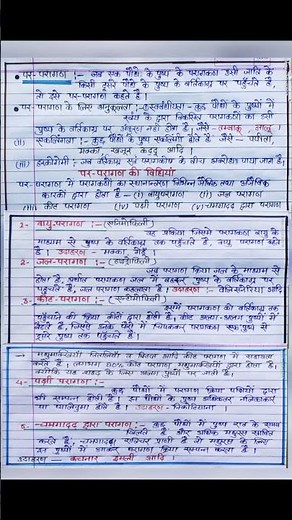 • पर-परागण :- जब एक पौधे के पुष्प के परागकण उसी जाति के
किसी दूसरे पौधे के पुष्प के वर्तिकाग्र पर पहुँचते हैं,
तो इसे पर-परागण कहते हैं।
• पर-परागण के लिए अनुकूलता :- कुछ पौधों के पुष्पों में
पुष्प के वर्तिकाग्र पर अंकुरण नहीं होता है, जैसे - तम्बाकू, आलू
(ii) एकलिंगता :- कुछ पौधों के पुष्प एकलिंगी होते हैं जैसे - पपीता,
मक्का, खजूर, कद्दू आदि।
(iii) हरकोगेमी :- जब वर्तिकाग्र एवं परागकोष के बीच अवरोध पाया जाता है।
पर-परागण की विधियाँ
पर-परागण में परागकणों का स्थानान्तरण विभिन्न भौतिक तथा जैविक
कारकों द्वारा होता है। (i) वायु परागण (ii) जल परागण
(iii) कीट परागण (iv) पक्षी परागण (v) चमगादड़ द्वारा परागण
1- वायु-परागण :- (एनीमोफिली)
वह प्रक्रिया जिसमें परागकण वायु के
माध्यम से पुष्प के वर्तिकाग्र तक पहुँचते हैं, वायु परागण कहते
हैं। उदाहरण - मक्का, गेहूँ।
2- जल-परागण :- (हाइड्रोफिली)
जब परागण क्रिया जल के माध्यम से
होता है, अर्थात परागकण जल में बहकर पुष्प के वर्तिकाग्र पर
पहुँचते हैं, जल परागण कहलाता है। उदाहरण - वेलिसनेरिया आदि
3- कीट-परागण :-
इसमें परागकणों को वर्तिकाग्र तक
पहुँचाने की क्रिया कीटों द्वारा होती है, कीट अलग-अलग पुष्पों पर
बैठते हैं, जिससे उनके पैरों में चिपककर परागकण एक पुष्प से
दूसरे पुष्प तक पहुँचते हैं।
→ मधुमक्खियाँ, तितलियाँ व आदि कीट परागण में सहायता
करते हैं। लगभग 80% कीट परागण मधुमक्खियों द्वारा होता है,
4- पक्षी परागण :-
कुछ पौधों में परागण क्रिया पक्षियों द्वारा
भी सम्पन्न होती है। इन पौधों के पुष्प अधिकतर नलिकाकार
या प्यालीनुमा होते हैं। उदाहरण - निकोटियाना।
5- चमगादड़ द्वारा परागण :- कुछ पौधों में पुष्प रात के समय
खिलते हैं और अधिक मकरन्द स्रावित
करते हैं, चमगादड़ रात्रिचर प्राणी है जो मकरन्द के लिए
इन पुष्पों में आकर परागण क्रिया सम्पन्न करता है।
उदाहरण - कचनार, इमली आदि।